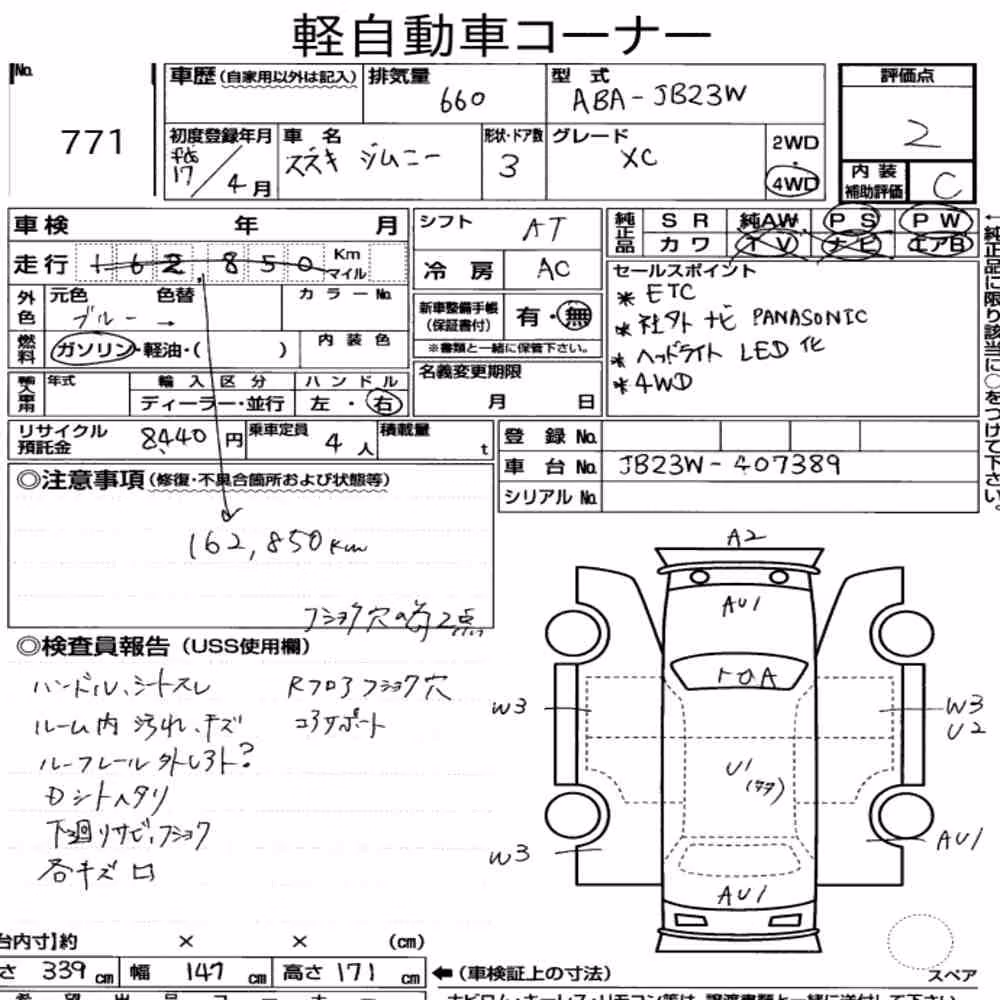 軽自動車コーナー
No. 771
車歴(自家用以外は記入)
排気量 660
型式 ABA-JB23W
評価点 2
初度登録年月 17/4月
車名 スズキ ジムニー
形状・ドア数 3
グレード XC
2WD
・
4WD
内装補助評価 C
車検 年 月
シフト AT
純正品 SR 純AW PS PW
カワ TV ナビ エアB
走行 162,850 Km マイル
冷房 AC
セールスポイント
※ ETC
※ 社外ナビ PANASONIC
※ ヘッドライト LED化
※ 4WD
外色 元色 ブルー → 色替 カラーNo.
新車整備手帳(保証書付) 有・無
※書類と一緒に保管下さい。
燃料 ガソリン・軽油・( ) 内装色
名義変更期限
月 日
輸入車用 年式 輸入区分 ハンドル
ディーラー・並行 左・右
←純正品に限り該当に○をつけて下さい。
リサイクル預託金 8440円 乗車定員 4人 積載量 t
登録No.
車台No. JB23W-407389
シリアルNo.
◎注意事項(修復・不具合箇所および状態等)
162,850km
フショク穴の為2点
◎検査員報告(USS使用欄)
ハンドル、シートスレ
Rフロアフショク穴
ルーム内 汚れ、キズ
コアサポート
ルーフレール外し3ト?
Dシートヘタリ
下廻りサビ、フショク
各キズ凹
A2
AU1
トロA
W3
W3
U2
U1
W3
AU1
AU1
台内寸】約 × × (cm)
さ 339cm 幅 147cm 高さ 171cm
←(車検証上の寸法)
スペア